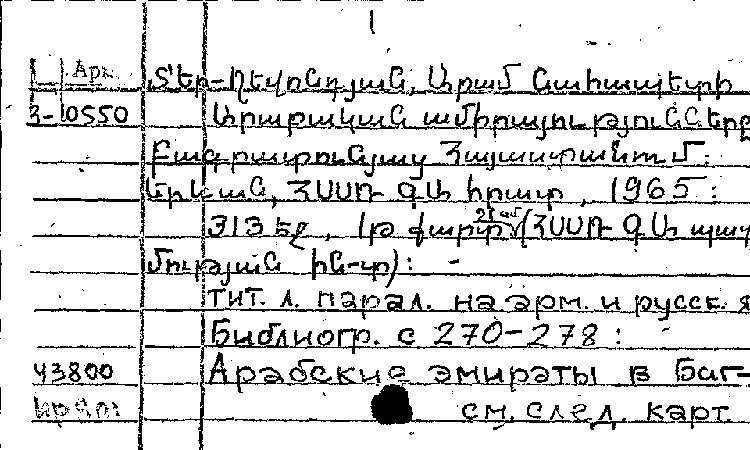 1
Арм. Տեր-Ղևոնդյան, Արամ Նահապետի
3-10550 Արաբական ամիրայությունները
Բագրատունյաց Հայաստանում:
Երևան, ՀՍՍՌ ԳԱ հրատ, 1965:
313 էջ, 1թ քարտ (ՀՍՍՌ ԳԱ պատ
մության ին-տ): -
тит. л. парал. на арм. и русск. я
Библиогр. с 270-278:
43800 Арабские эмираты в Баг-
см. след. карт